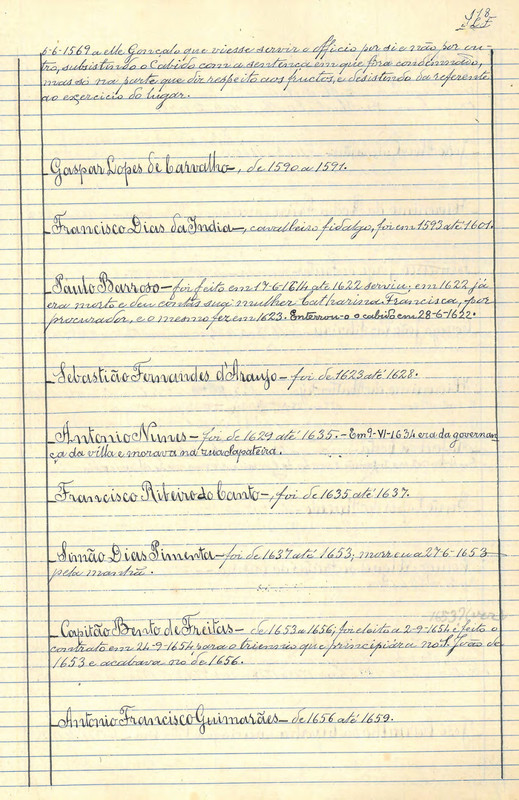 118
6-6-1569 a elle Gonçalo que viesse servir o officio por si e não por ou-
tro, subsistindo o Cabido com a sentença em que fôra condemnado,
mas só na parte que diz respeito aos fructos, e desistindo da referente
ao exercicio do lugar.
- Gaspar Lopes de Carvalho -, de 1590 a 1591.
- Francisco Dias da India -, cavalheiro fidalgo, foi em 1593 até 1601.
- Paulo Barroso - foi feito em 17-6-1614 até 1622 serviu; em 1622 já
era morto e deu contas sua mulher Catharina Francisca, por
procurador, e o mesmo fez em 1623. Enterrou-o o cabido em 28-6-1622.
- Sebastião Fernandes d'Araujo - foi de 1623 até 1628.
- Antonio Nunes - foi de 1629 até 1635. - Em 9-VI-1634 era da governan-
ça da villa e morava na rua çapateira.
- Francisco Ribeiro do Canto -, foi de 1635 até 1637.
- Simão Dias Pimenta - foi de 1637 até 1653; morreu a 27-6-1653
pela manhã.
1653 (ver)
- Capitão Bento de Freitas - de 1653 a 1656; foi eleito a 2-9-1654 e feito o
contrato em 24-9-1654 para o triennio que principiára no S. João de
1653 e acabava no de 1656.
- Antonio Francisco Guimarães - de 1656 até 1659.